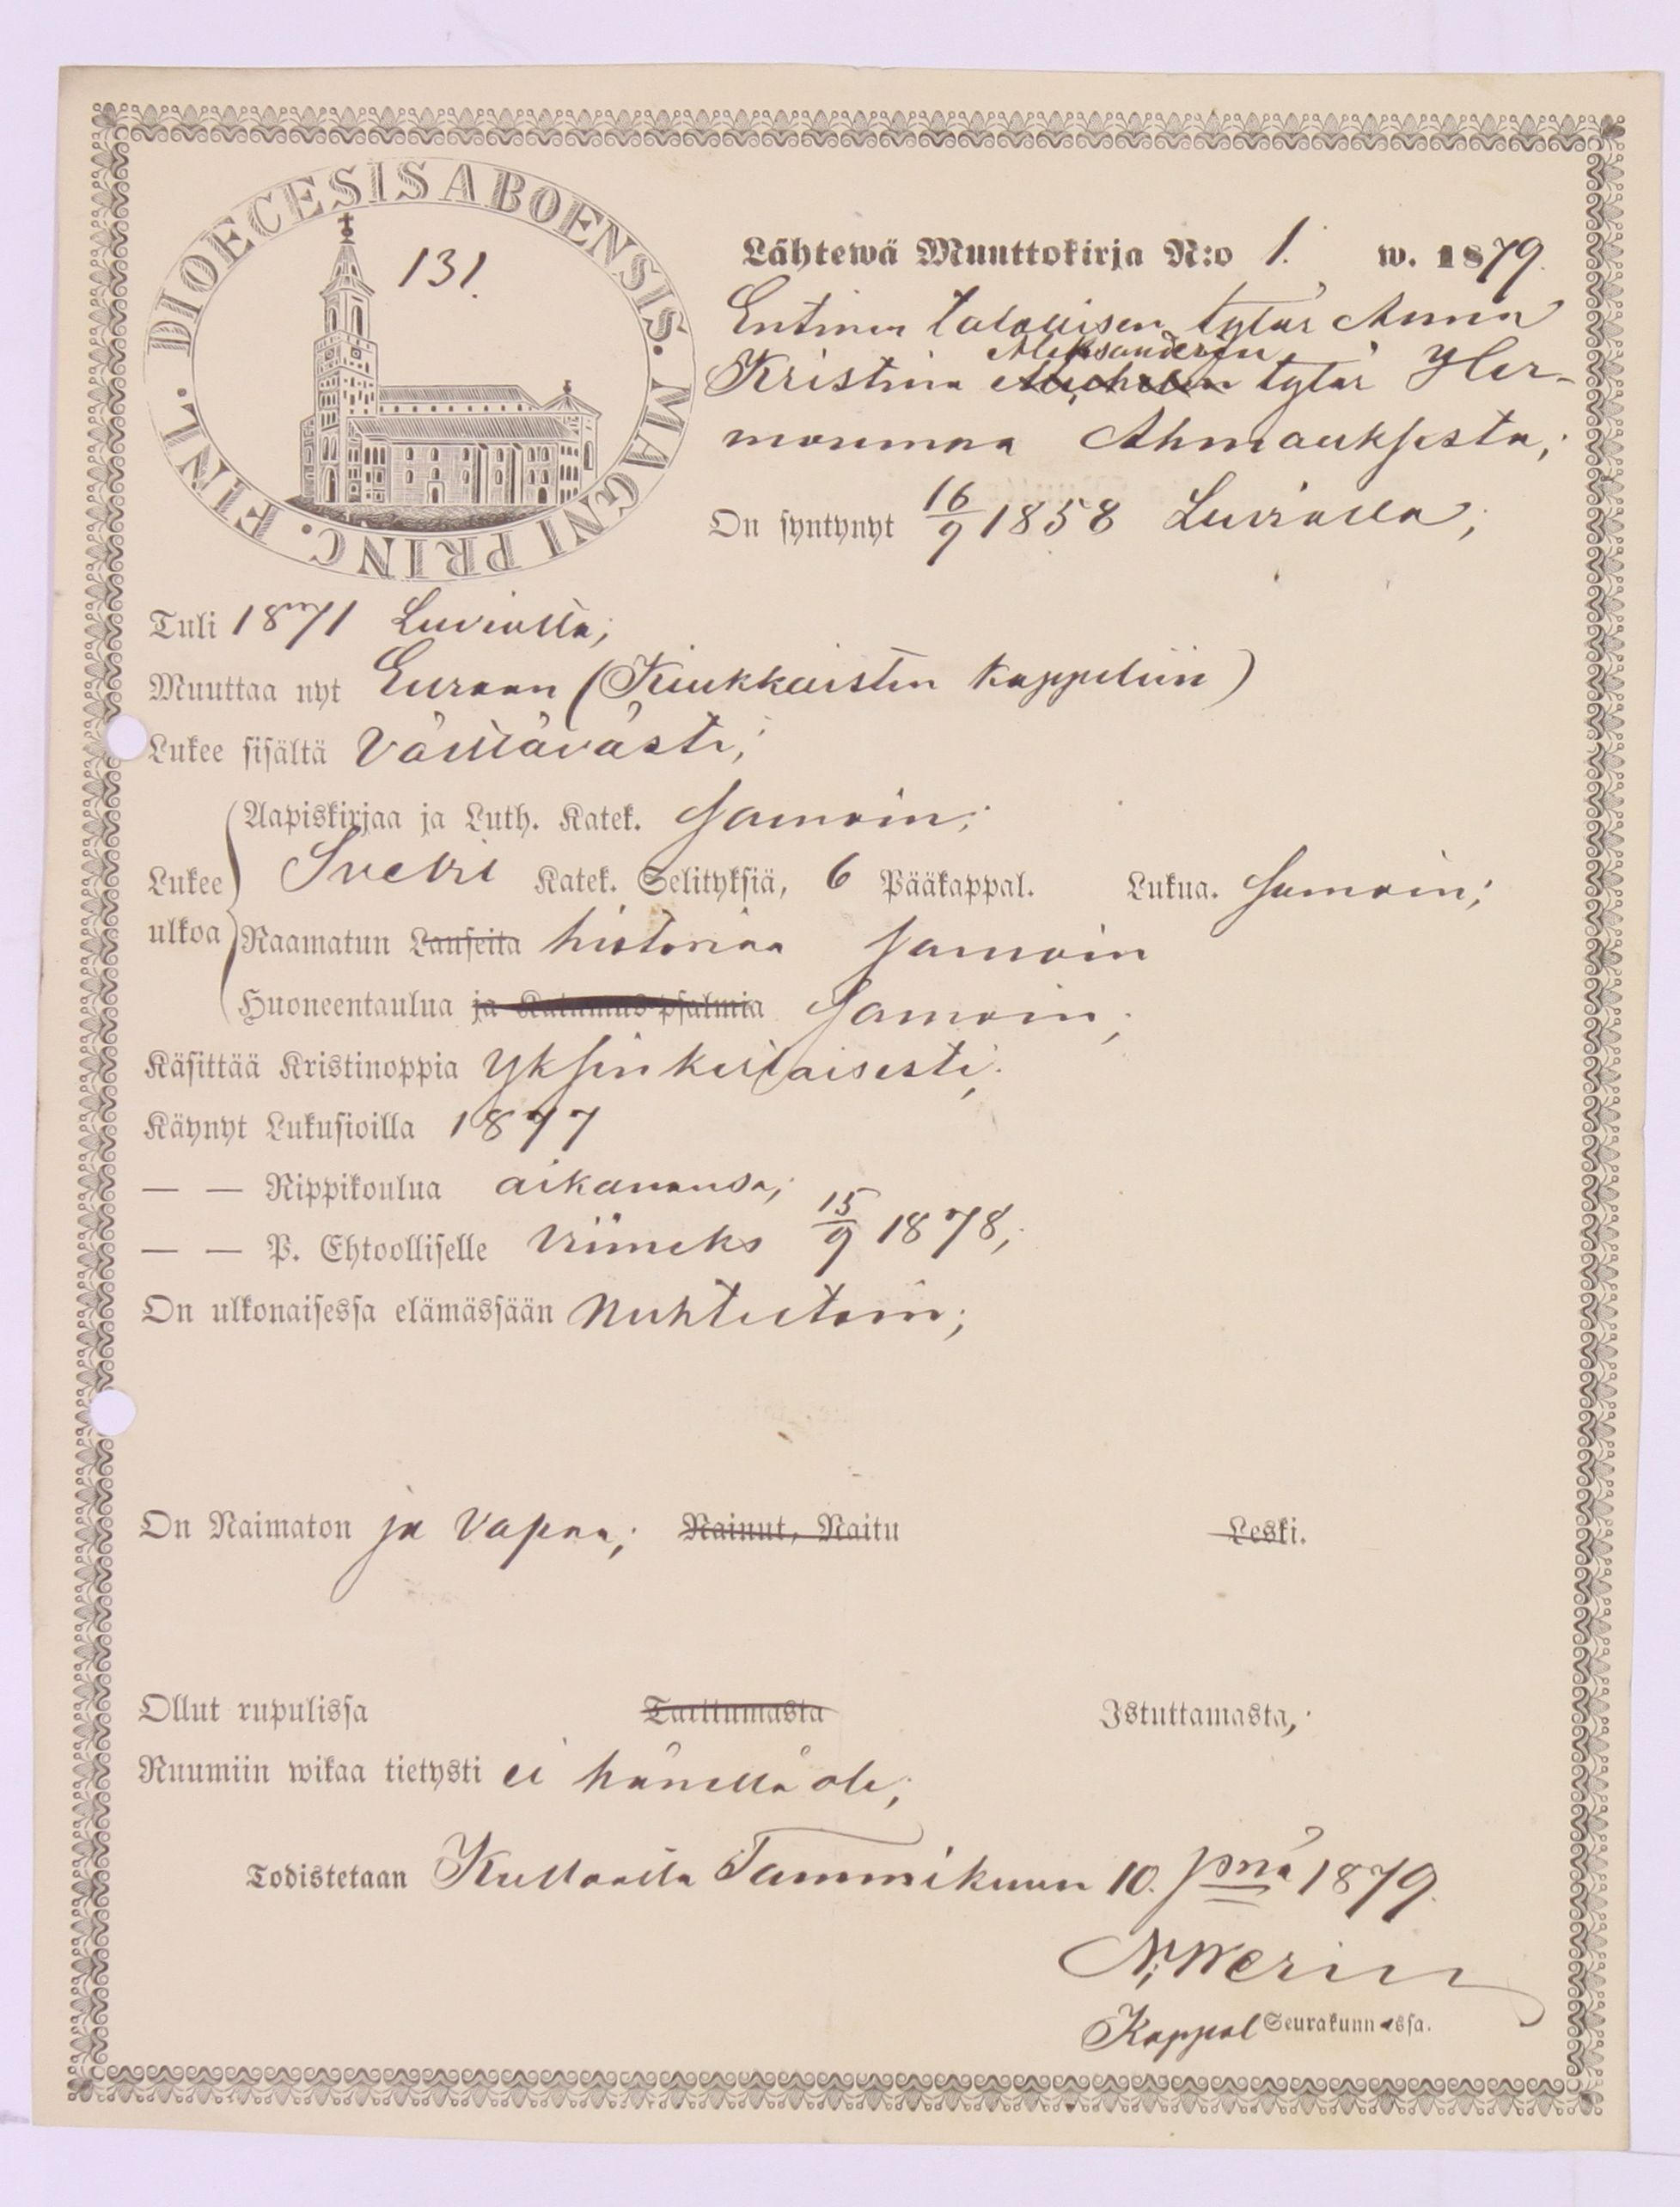 DIOECESIS ABOENSIS. MAGNI PRINC. FINL.
131.
Lähtewä Muuttokirja N:o 1. w. 1879.
Entinen talollisen tytär Anna
Aleksanderin
Kristina tytär Her-
monmaa Ahmauksesta;
On syntynyt 16/9 1858 Luvialla;
Tuli 1871 Luvialta;
Muuttaa nyt Euraan (Kiukkaisten kappeliin)
Lukee sisältä Välttävästi;
Lukee ulkoa
Aapiskirjaa ja Luth. Katek. samoin;
Svebil Katek. Selityksiä, 6 Pääkappal. Lukua. samoin;
Raamatun Lauseita historiaa samoin
Huoneentaulua ja Katumus-psalmia samoin;
Käsittää Kristinoppia Yksinkertaisesti;
Käynyt Lukusioilla 1877
— — Rippikoulua aikanansa;
— — P. Ehtoolliselle Viimeks 15/9 1878;
On ulkonaisessa elämässään Nuhteetoin;
On Naimaton ja Vapaa; Nainut, Naitu Leski.
Ollut rupulissa Tarttumasta Istuttamasta,
Ruumiin wikaa tietysti ei hänellä ole;
Todistetaan Kullaalla Tammikuun 10. pnä 1879.
Kappal Seurakunnassa.